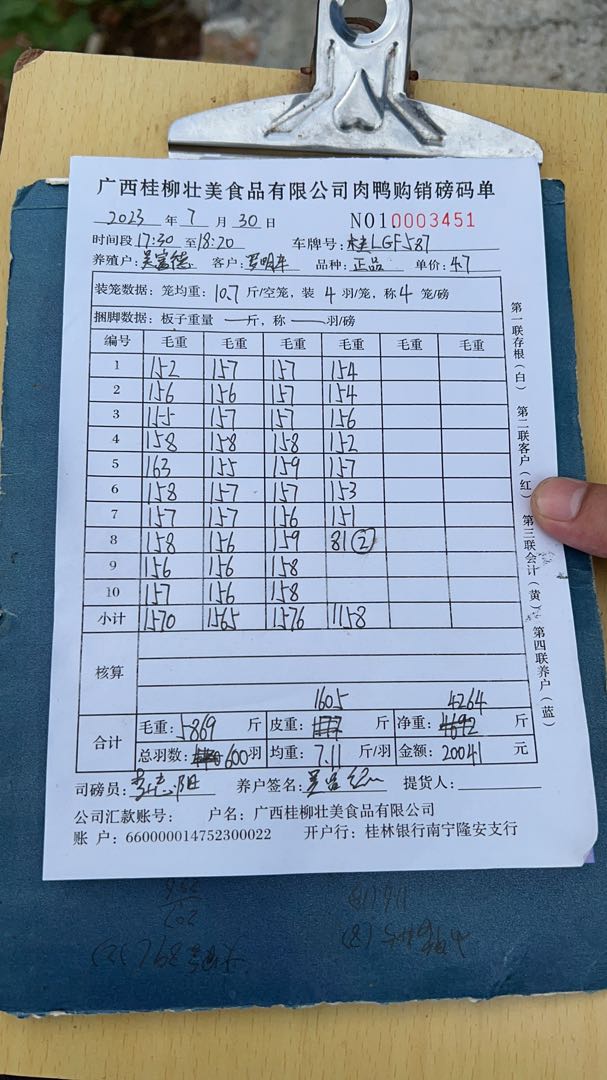 广西桂柳壮美食品有限公司肉鸭购销磅码单
2023 年 7 月 30 日 NO10003451
时间段 17:30 至 18:20 车牌号: 桂LGF587
养殖户: 吴富德 客户: 品种: 正品 单价: 4.7
装笼数据: 笼均重: 10.7 斤/空笼, 装 4 羽/笼, 称 4 笼/磅
捆脚数据: 板子重量 — 斤, 称 — 羽/磅
编号 毛重 毛重 毛重 毛重 毛重 毛重
1 152 157 157 154
2 156 156 157 154
3 155 157 157 156
4 158 158 158 152
5 163 155 159 157
6 158 157 157 153
7 157 157 156 151
8 158 156 159 81 ②
9 156 156 158
10 157 156 158
小计 1570 1565 1576 1158
核算
1605 4264
合计 毛重: 5869 斤 皮重: 斤 净重: 4692 斤
总羽数: 600 羽 均重: 7.11 斤/羽 金额: 20041 元
司磅员: 养户签名: 提货人:
公司汇款账号: 户名: 广西桂柳壮美食品有限公司
账 户: 660000014752300022 开户行: 桂林银行南宁隆安支行
第一联存根(白) 第二联客户(红) 第三联会计(黄) 第四联养户(蓝)